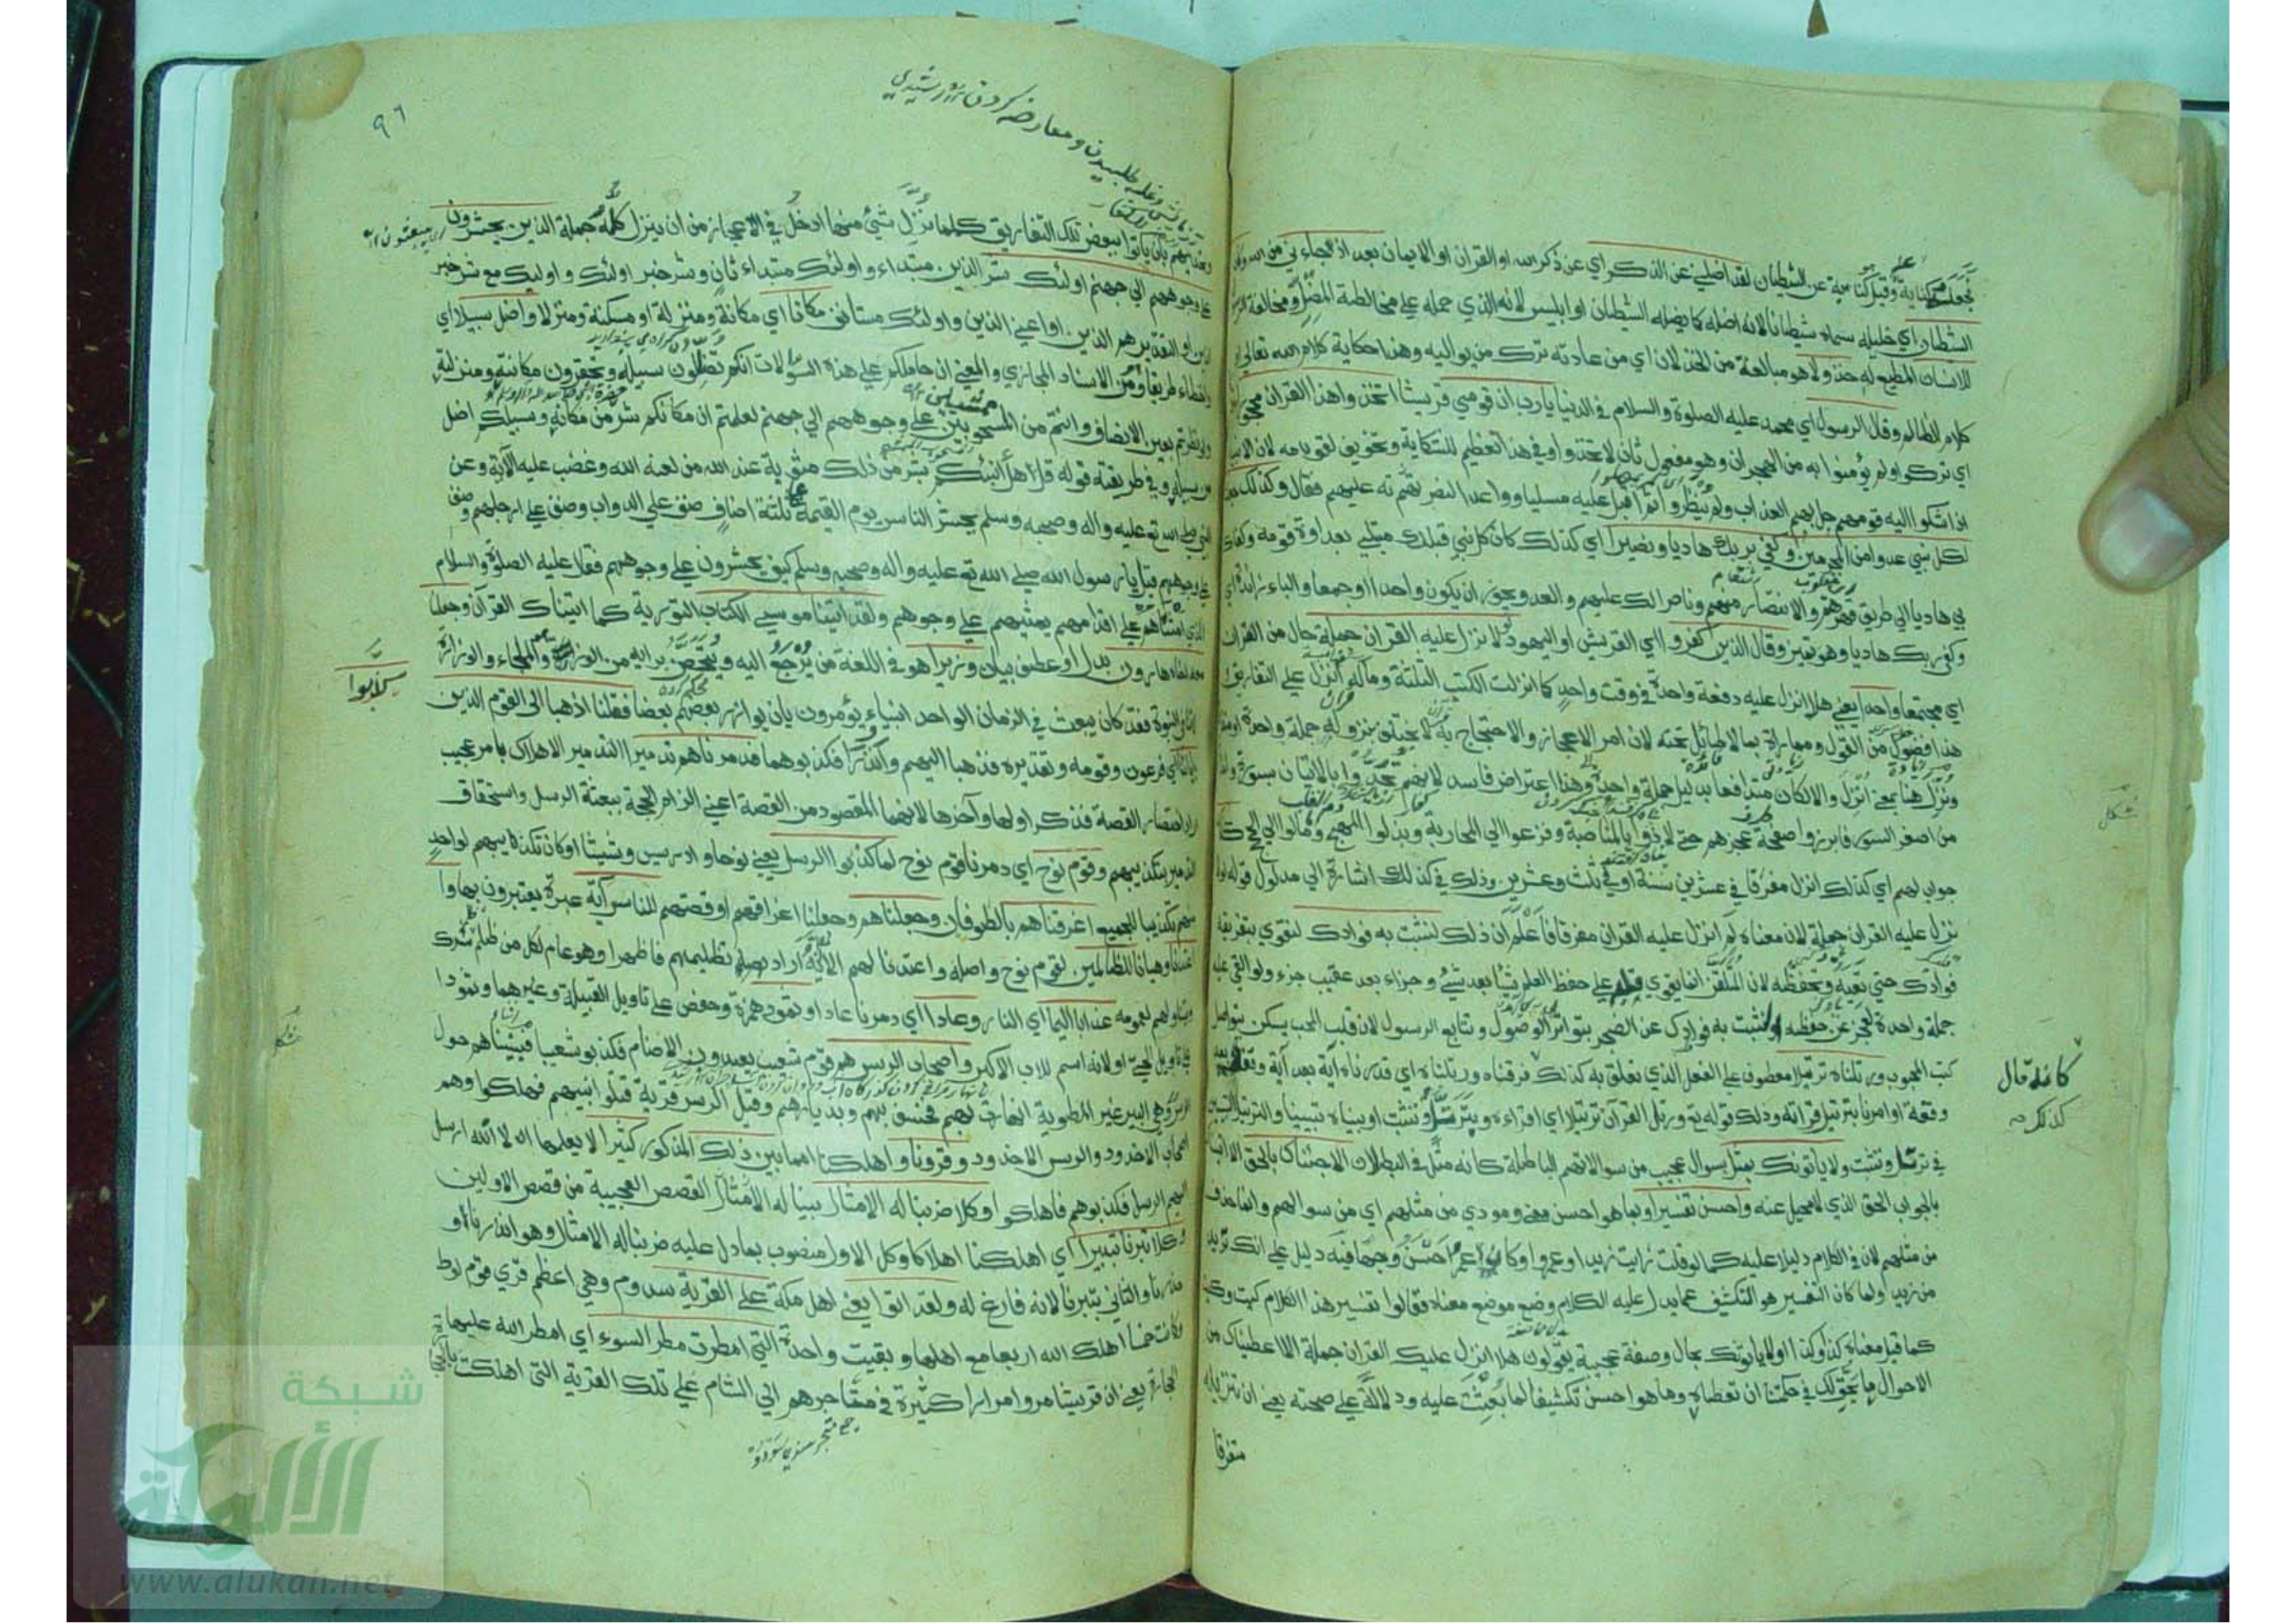 الشيطان اي خليله سماه شيطانا لانه اضله كما يضله الشيطان او ابليس لانه الذي حمله على مخالطة المضل ومخالفة
للانسان المطيع له خذولا هو مبالغة من الخذلان اي من عادته ترك من يواليه وهذا حكاية كلام الله تعالى
كلام الظالم وقال الرسول اي محمد عليه الصلوة والسلام في الدنيا يارب ان قومي قريشا اتخذوا هذا القران مهجورا
اي تركوا ولم يؤمنوا به من الهجران وهو مفعول ثان لاتخذوا وفي هذا تعظيم للشكاية وتخويف لقومه لان الانبيا
اذا شكوا اليه قومهم حل بهم العذاب ولم ينظروا ثم اقبل عليه مسليا وواعدا النصر عليهم فقال وكذلك
لكل نبي عدوا من المجرمين وكفى بربك هاديا ونصيرا اي كذلك كان كل نبي قبلك مبتلى بعداوة قومه وكفاك
بي هاديا الى طريق قهرهم والانتصار منهم وناصرا لك عليهم والعدو يجوز ان يكون واحدا او جمعا والباء زائدة اي
وكفى ربك هاديا وهو تميز وقال الذين كفروا اي القريش او اليهود لولا نزل عليه القران جملة حال من القران
اي مجتمعا واحدة يعني هلا انزل عليه دفعة واحدة في وقت واحد كما انزلت الكتب الثلثة وماله انزل على التفاريق
هذا فضول من القول ومماراة بما لا طائل تحته لان امر الاعجاز والاحتجاج به لا يختلف بنزوله جملة واحدة او
ونزل هنا بمعنى انزل والا لكان متدافعا بدليل جملة واحدة وهذا اعتراض فاسد لانهم تحدوا بالاتيان بسورة
من اصغر السور فابرزوا صفحة عجزهم حتى لاذوا بالمناصبة وفزعوا الى المحاربة وبذلوا المهج وما مالوا الى الحجج
جواب لهم اي كذلك انزل مفرقا في عشرين سنة او في ثلث وعشرين وذلك في كذلك اشارة الى مدلول قوله لولا
نزل عليه القران جملة لان معناه لم انزل عليه القران مفرقا فاعلم ان ذلك لنثبت به فوادك لنقوي بتفريقه
فوادك حتى تعيه وتحفظه لان المتلقن انما يقوي قلبه على حفظ العلم شيئا بعد شيئ وجزاء بعد عقيب جزء ولو القي عليه
جملة واحدة لعجز عن حفظه او لنثبت به فوادك عن الضجر بتواتر الوصول وتتابع الرسول لان قلب المحب يسكن بتواصل
كتب المحبوب ورتلناه ترتيلا معطوف على الفعل الذي تعلق به كذلك فرقناه ورتلناه اي قدرناه آية بعد آية
وقفة او امرنا بترتيل قراءته وذلك قوله تع ورتل القرآن ترتيلا اي اقراءه بترسل وتثبت او بيناه تبيينا والترتيل التبيين
في ترسل وتثبت ولا ياتونك بمثل بسوال عجيب من سوالاتهم الباطلة كانه مثل في البطلان الا جئناك بالحق الا اتيناك
بالجواب الحق الذي لا محيل عنه واحسن تفسيرا وبما هو احسن معنى ومودي من مثلهم اي من سوالهم وانما حذف
من مثلهم لان في الكلام دليلا عليه كما لو قلت رايت زيدا وعمروا وكان عمرو احسن وجها فيه دليل على انك تريد
من زيد ولما كان التفسير هو التكشيف عما يدل عليه الكلام وضع موضع معناه فقالوا تفسير هذا الكلام كيت وكيت
كما قيل معناه كذا وكذا او لا ياتونك بحال وصفة عجيبة يقولون هلا انزل عليك القران جملة الا اعطيناك من
الاحوال ما يحق لك في حكمتنا ان تعطاه وما هو احسن تكشيفا لما بعثت عليه ودلالة على صحته يعني ان تنزيله
متفرقا
كانه قال
كذلك
٩٦
وتحديهم بان ياتوا ببعض تلك التفاريق كلما نزل شيئ منها ادخل في الاعجاز من ان ينزل كله جملة الذين يحشرون
على وجوههم الى جهنم اولئك شر الذين مبتداء واولئك مبتداء ثان وشر خبر اولئك واوليك مع شر خبر
الذين او التقدير هم الذين او اعني الذين واولئك مستانف مكانا اي مكانة ومنزلة او مسكنة ومنزلا واضل سبيلا اي
واخطاء طريقا وهو من الاسناد المجازي والمعنى ان حاملكم على هذه السوالات انكم تضللون سبيله وتحقرون مكانته ومنزلته
ولو نظرتم بعين الانصاف وانتم من المسحوبين على وجوههم الى جهنم لعلمتم ان مكانكم شر من مكانه وسبيلكم اضل
من سبيله وفي طريقته قوله قل هل انبئكم بشر من ذلك مثوبة عند الله من لعنه الله وغضب عليه الآية وعن
النبي صلى الله تع عليه واله وصحبه وسلم يحشر الناس يوم القيمة على ثلثة اصناف صنف على الدواب وصنف على ارجلهم وصنف
على وجوههم قيل يا رسول الله صلى الله تع عليه واله وصحبه وسلم كيف يحشرون على وجوههم فقال عليه الصلوة والسلام
الذي امشاهم على اقدامهم يمشيهم على وجوههم ولقد اتينا موسى الكتاب التورية كما اتيناك القرآن وجعلنا
معه اخاه هارون بدل او عطف بيان وزيرا هو في اللغة من يرجع اليه ويتحصن برايه من الوزر وهو الملجاء والوزارة
لا تنافي النبوة فقد كان يبعث في الزمان الواحد انبياء يؤمرون بان يوازر بعضهم بعضا فقلنا اذهبا الى القوم الذين
باياتنا الى فرعون وقومه وتقديره فذهبا اليهم وانذرا فكذبوهما فدمرناهم تدميرا التدمير الاهلاك بامر عجيب
اراد اختصار القصة فذكر اولها وآخرها لانهما المقصود من القصة اعني الزام الحجة ببعثة الرسل واستحقاق
التدمير بتكذيبهم وقوم نوح اي دمرنا قوم نوح لما كذبوا الرسل يعني نوحا وادريس وشيثا او كان تكذيبهم لواحد
منهم تكذيبا للجميع اغرقناهم بالطوفان وجعلناهم وجعلنا اغراقهم او قصتهم للناس آية عبرة يعتبرون بها وا
عتدنا وهيانا للظالمين لقوم نوح واصله واعتدنا لهم الا انه اراد تظليمهم فاظهر او هو عام لكل من ظلم شرك
ويتناولهم بعمومه عذابا اليما اي النار وعادا اي دمرنا عادا وثمود حمزة وحفص على تاويل القبيلة وغيرهما وثمودا
على تاويل الحي او لانه اسم للاب الاكبر واصحاب الرس هم قوم شعيب يعبدون الاصنام فكذبوا شعيبا فبيناهم حول
الرس وهي البير غير المطوية انهارت بهم فخسف بهم وبديارهم وقيل الرس قرية قتلوا نبيهم فهلكوا وهم
اصحاب الاخدود والرس الاخدود وقرونا واهلكنا امما بين ذلك المذكور كثيرا لا يعلمها الا الله ارسل
اليهم الرسل فكذبوهم فاهلكوا وكلا ضربنا له الامثال بينا له الامثال القصص العجيبة من قصص الاولين
وكلا تبرنا تتبيرا اي اهلكنا اهلاكا وكل الاول منصوب بما دل عليه ضربنا له الامثال وهو انذرنا او
حذرنا والثاني بتبرنا لانه فارغ له ولقد اتوا يعني اهل مكة على القرية سدوم وهي اعظم قرى قوم لوط
وكانت خمسا اهلك الله اربعا مع اهلها وبقيت واحدة التي امطرت مطر السوء اي امطر الله عليها
الحجارة يعني ان قريشا مروا مرارا كثيرة في متاجرهم الى الشام على تلك القرية التي اهلكت
كذبوا
شبكة
الألوكة
www.alukah.net